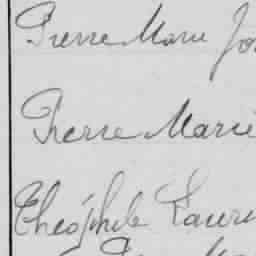 Pierre Marie Jos
Pierre Marie
Théophile Laure